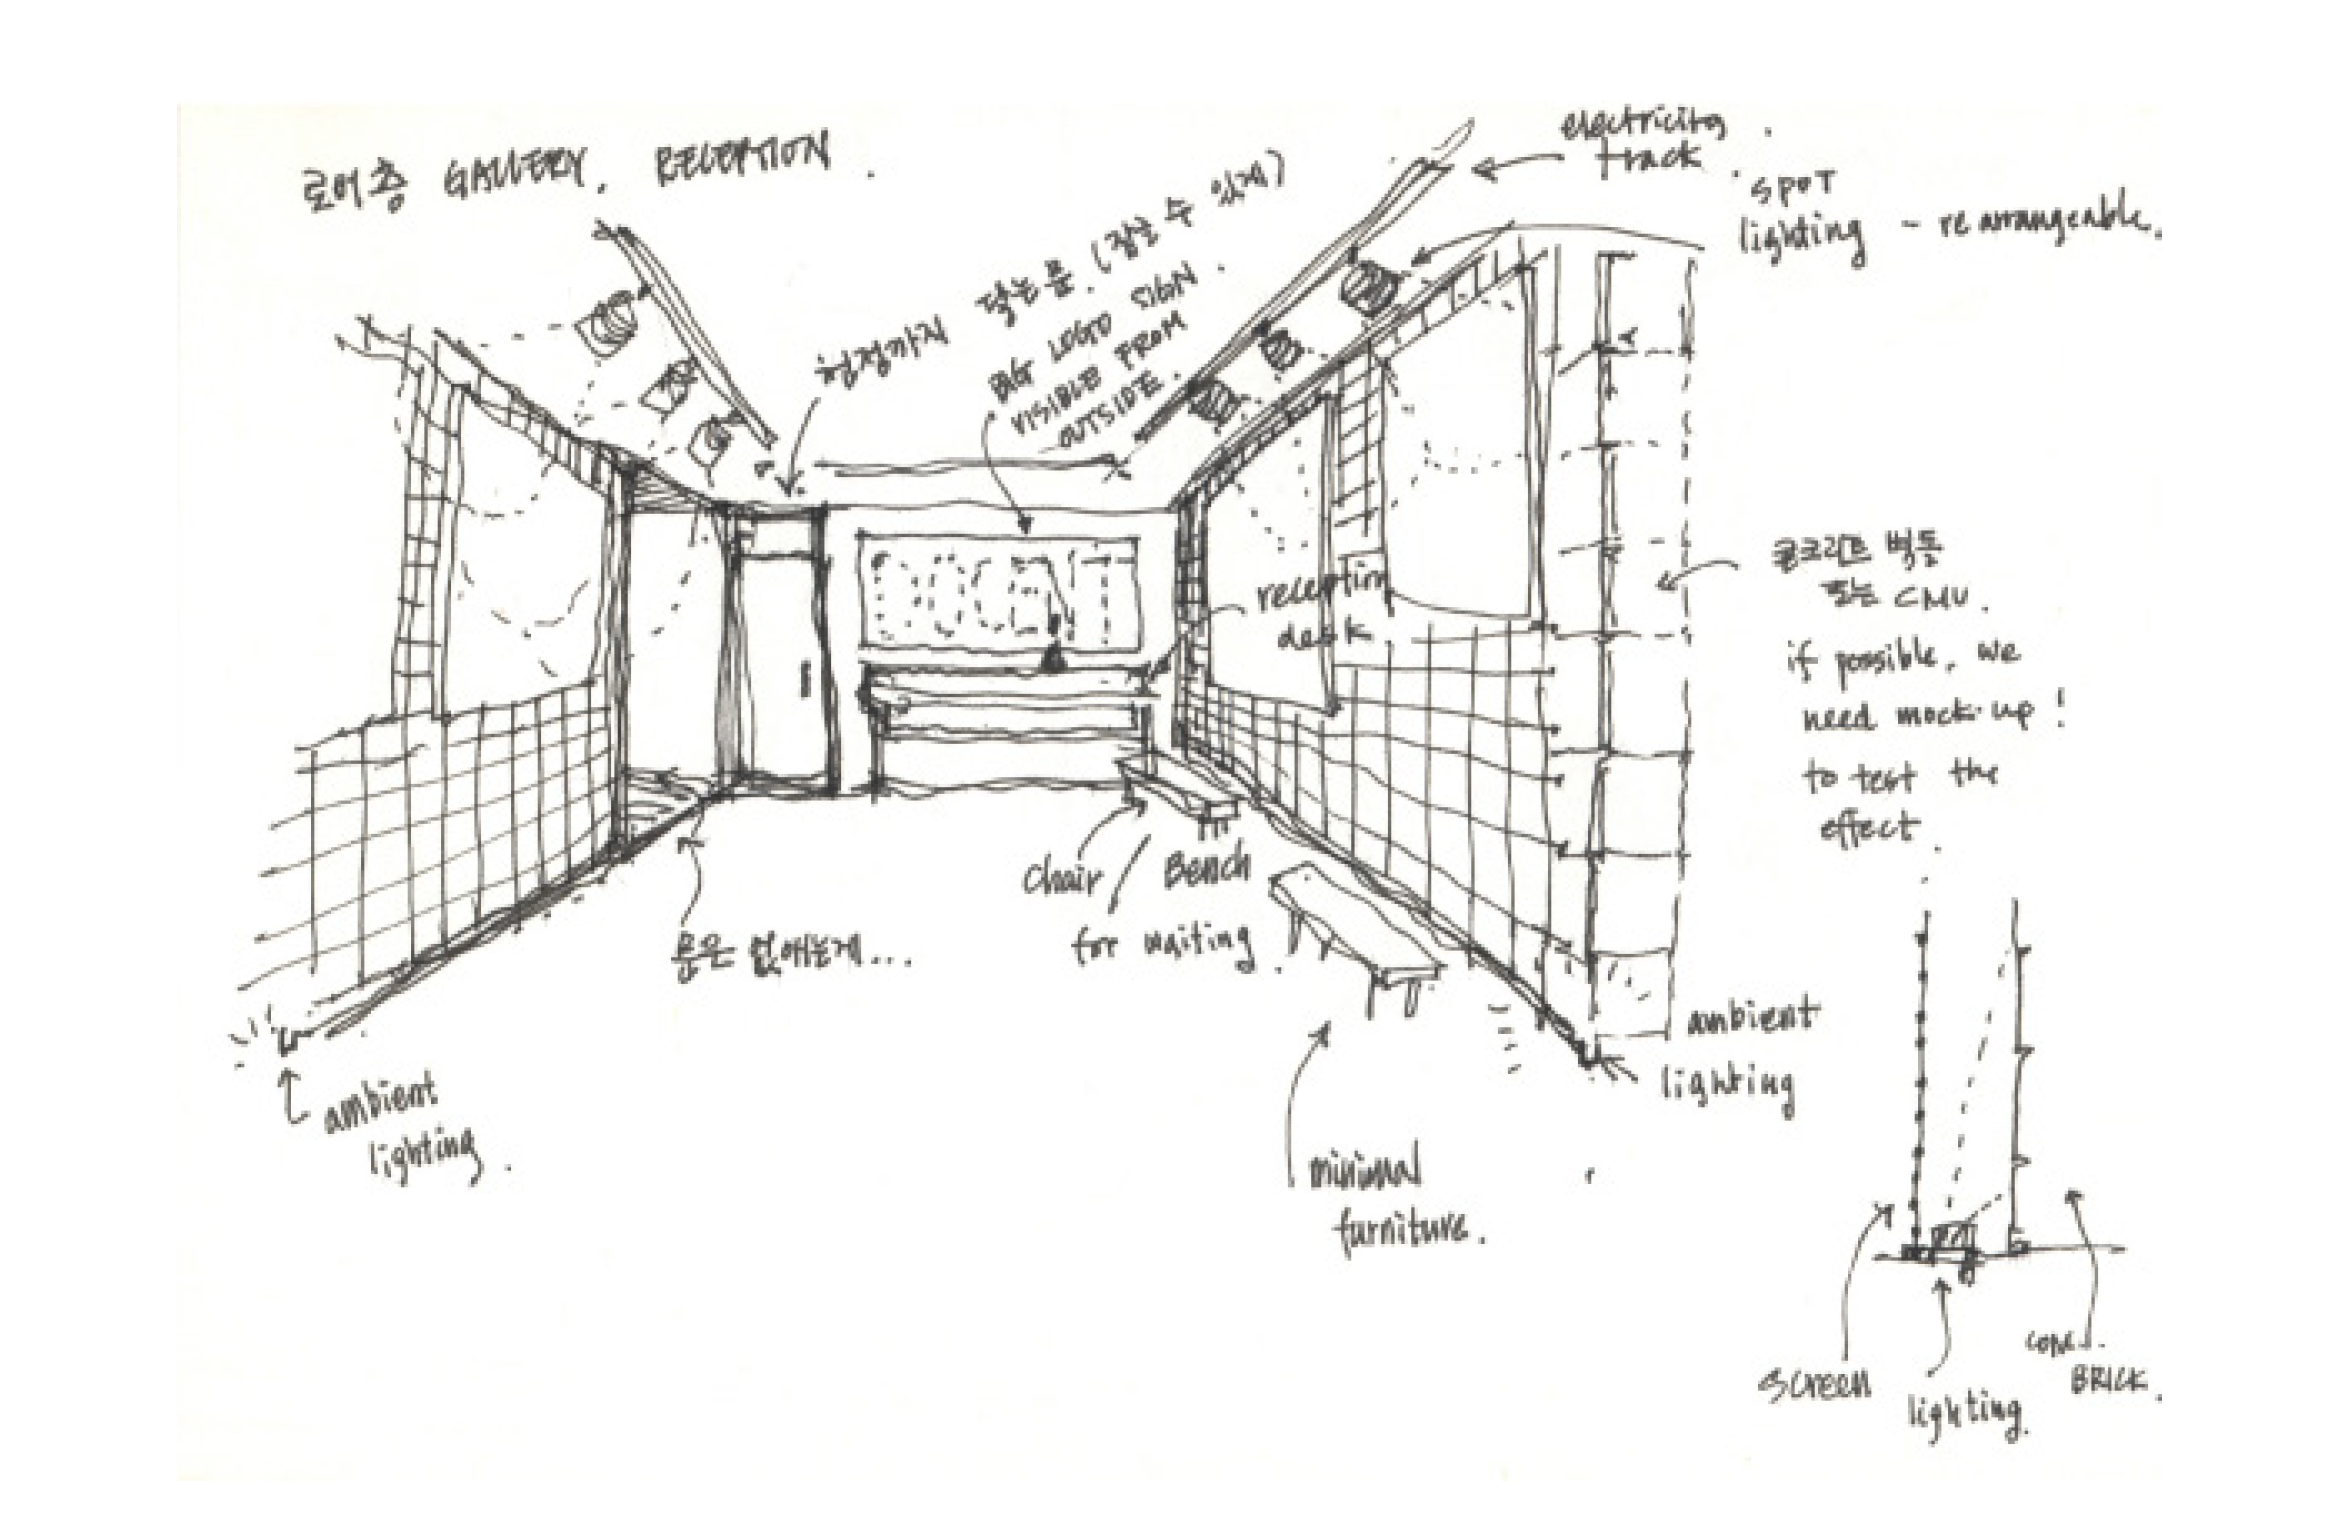 로어층 GALLERY. RECEPTION.
electricity
track.
SPOT
lighting - rearrangeable.
천정까지 닫는 문. (잠글 수 있게)
BIG LOGO SIGN.
VISIBLE FROM
OUTSIDE.
reception
desk
콘크리트 벽돌
또는 CMU.
if possible, we
need mock-up!
to test the
effect.
Chair / Bench
for waiting.
문은 없애는게...
ambient
lighting.
ambient
lighting
minimal
furniture.
SCREEN
lighting.
conc.
BRICK.